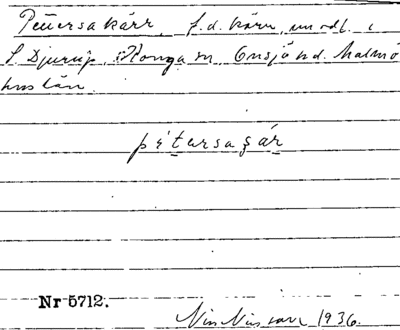 Petersakärr, f.d. kärr, un odl. i
S. Djurup, Konga sn, Onsjö hd. Malmö
hus län.
pétersaʂár
Nr 5712.
Nils Nilsson 1936.